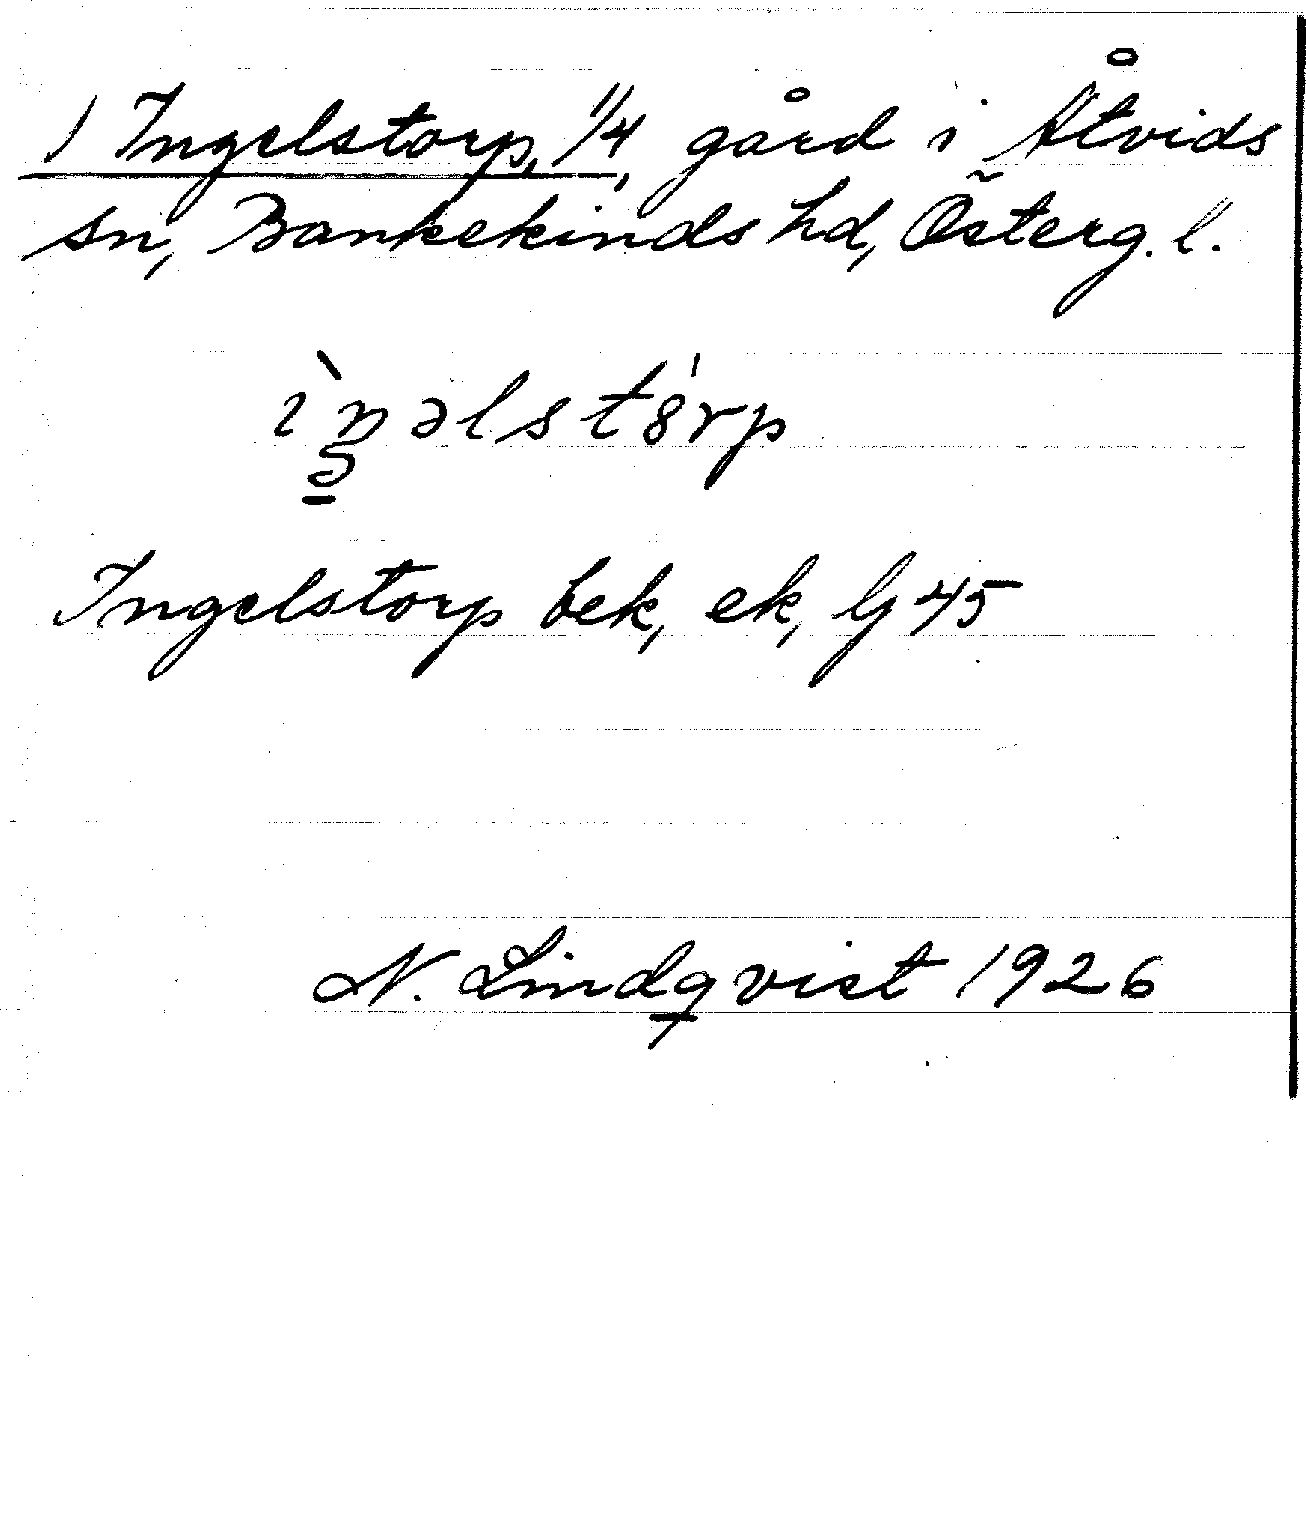 1 Ingelstorp, 1/4, gård i Åtvids
sn, Bankekinds hd, Österg. l.
ìŋəlstórp
Ingelstorp bek, ek, lj 45
N. Lindqvist 1926